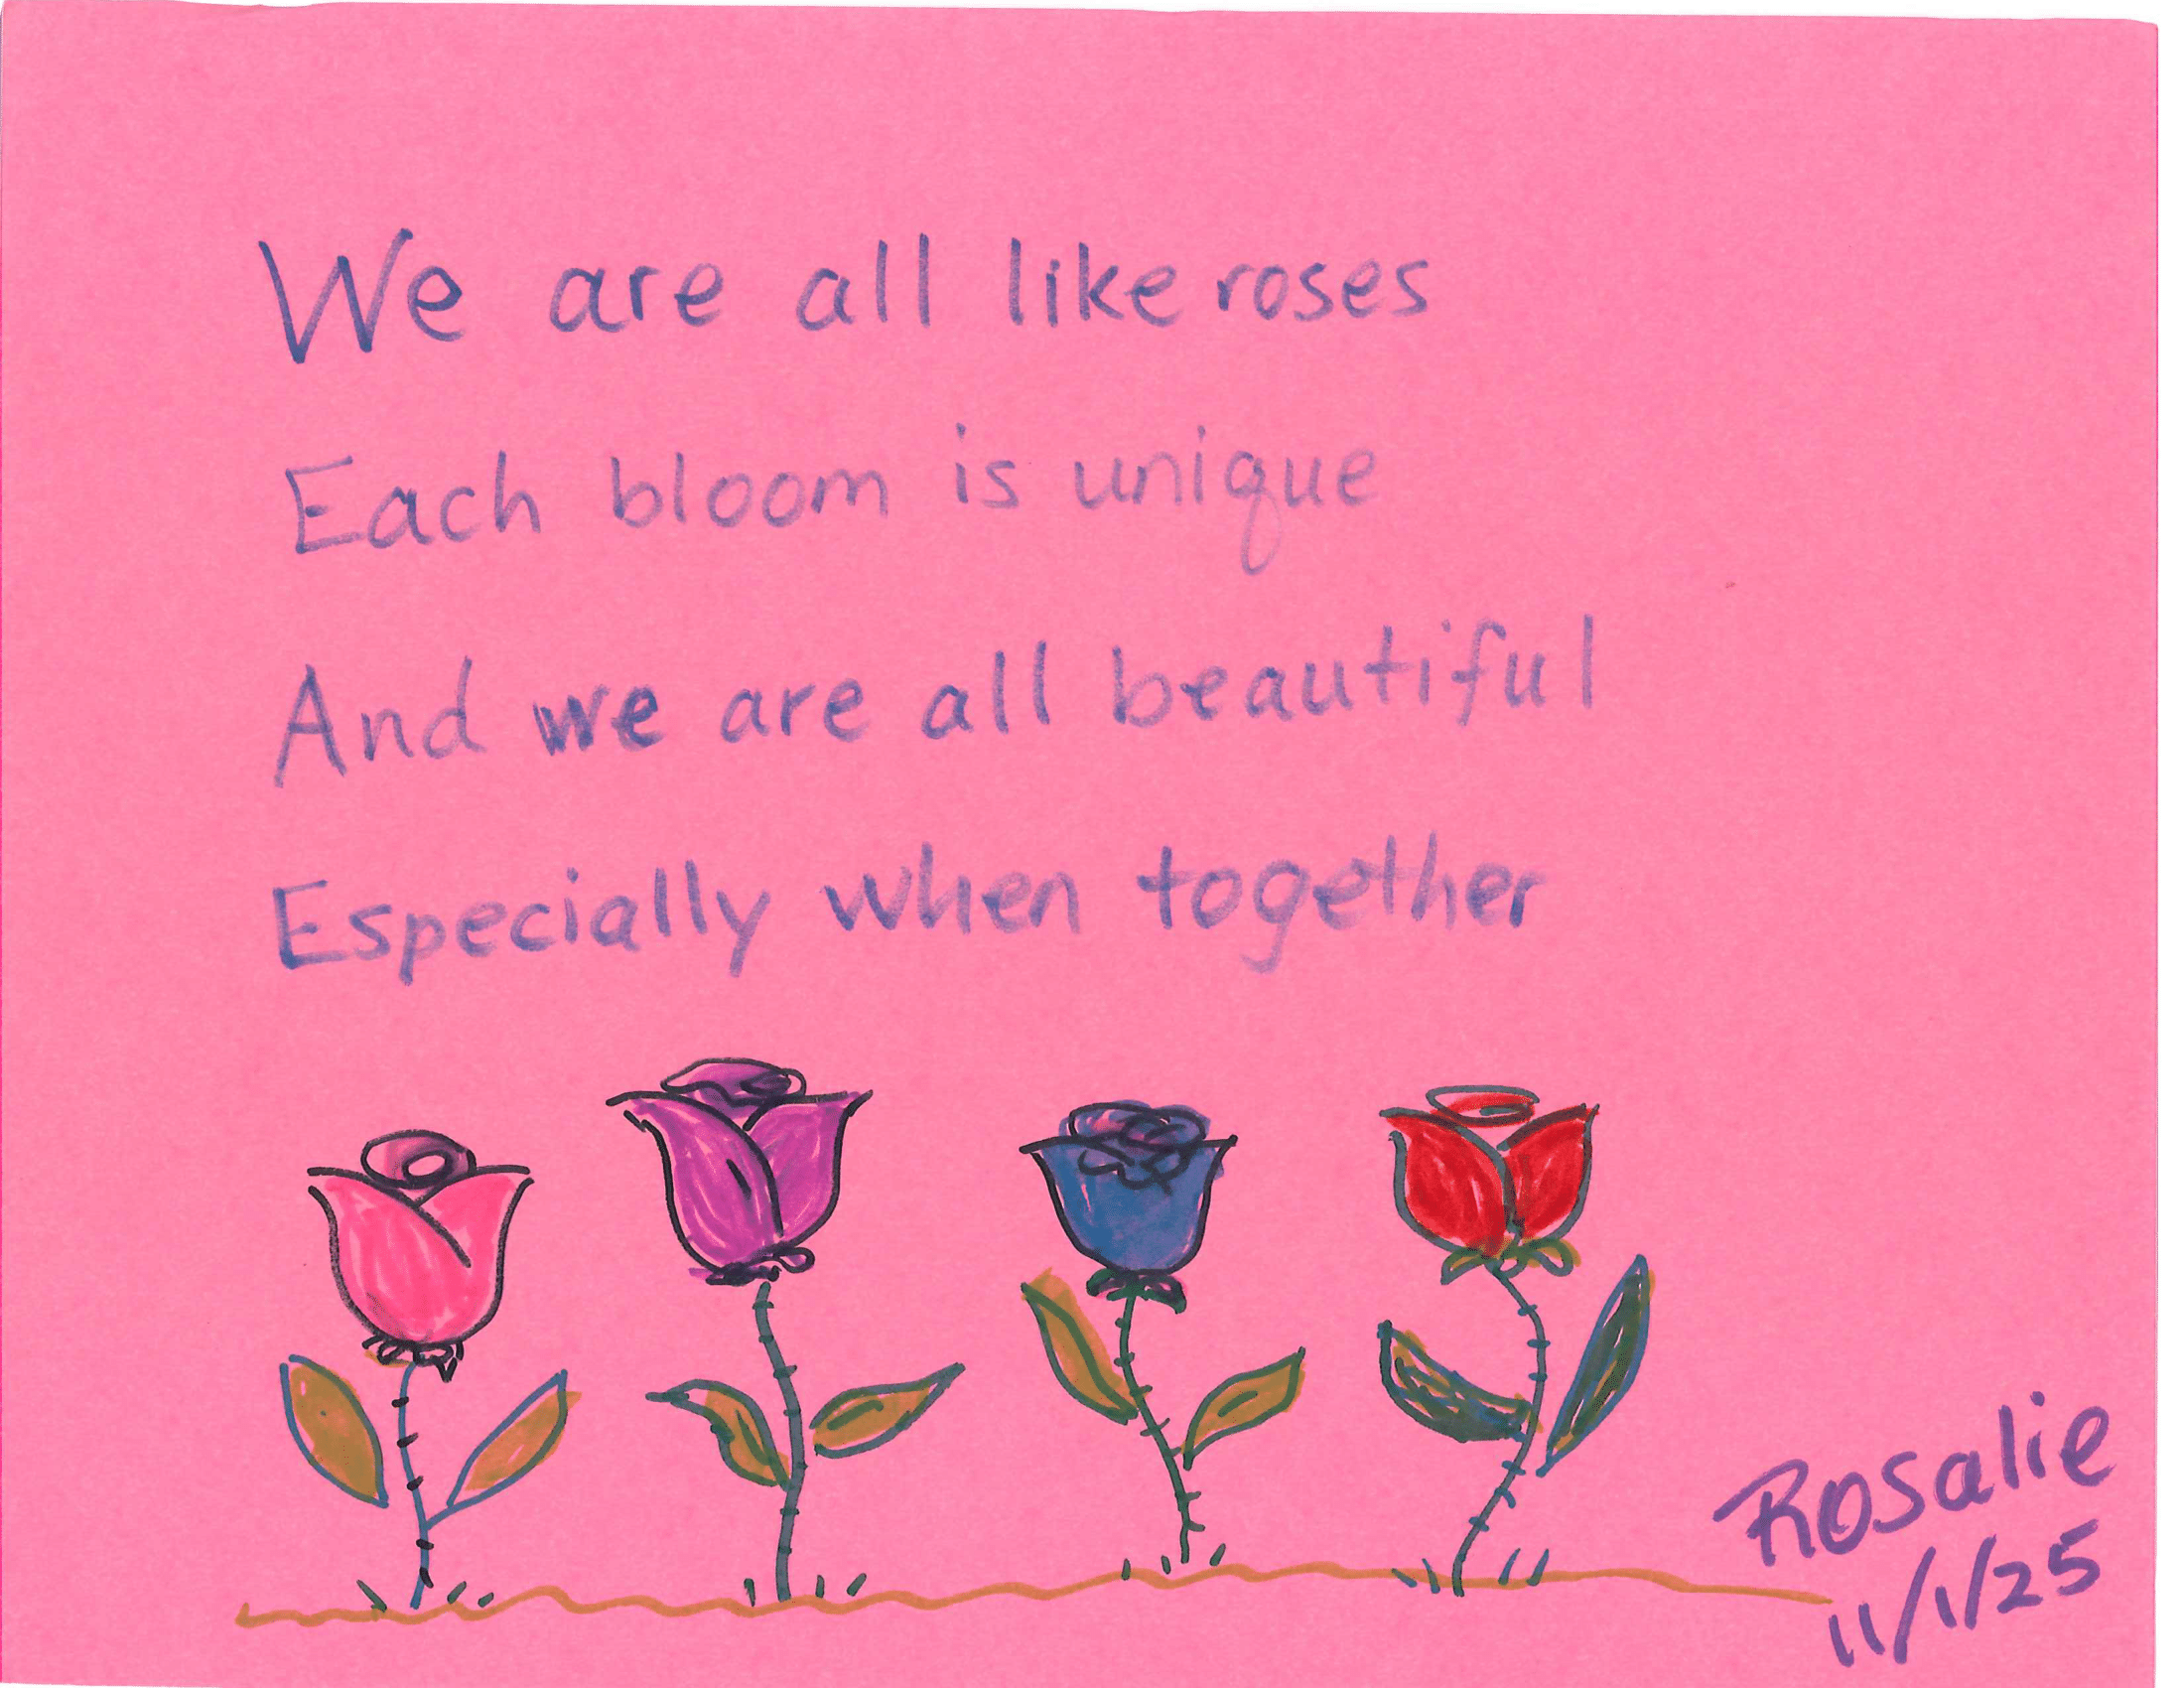 We are all like roses
Each bloom is unique
And we are all beautiful
Especially when together
Rosalie
11/1/25